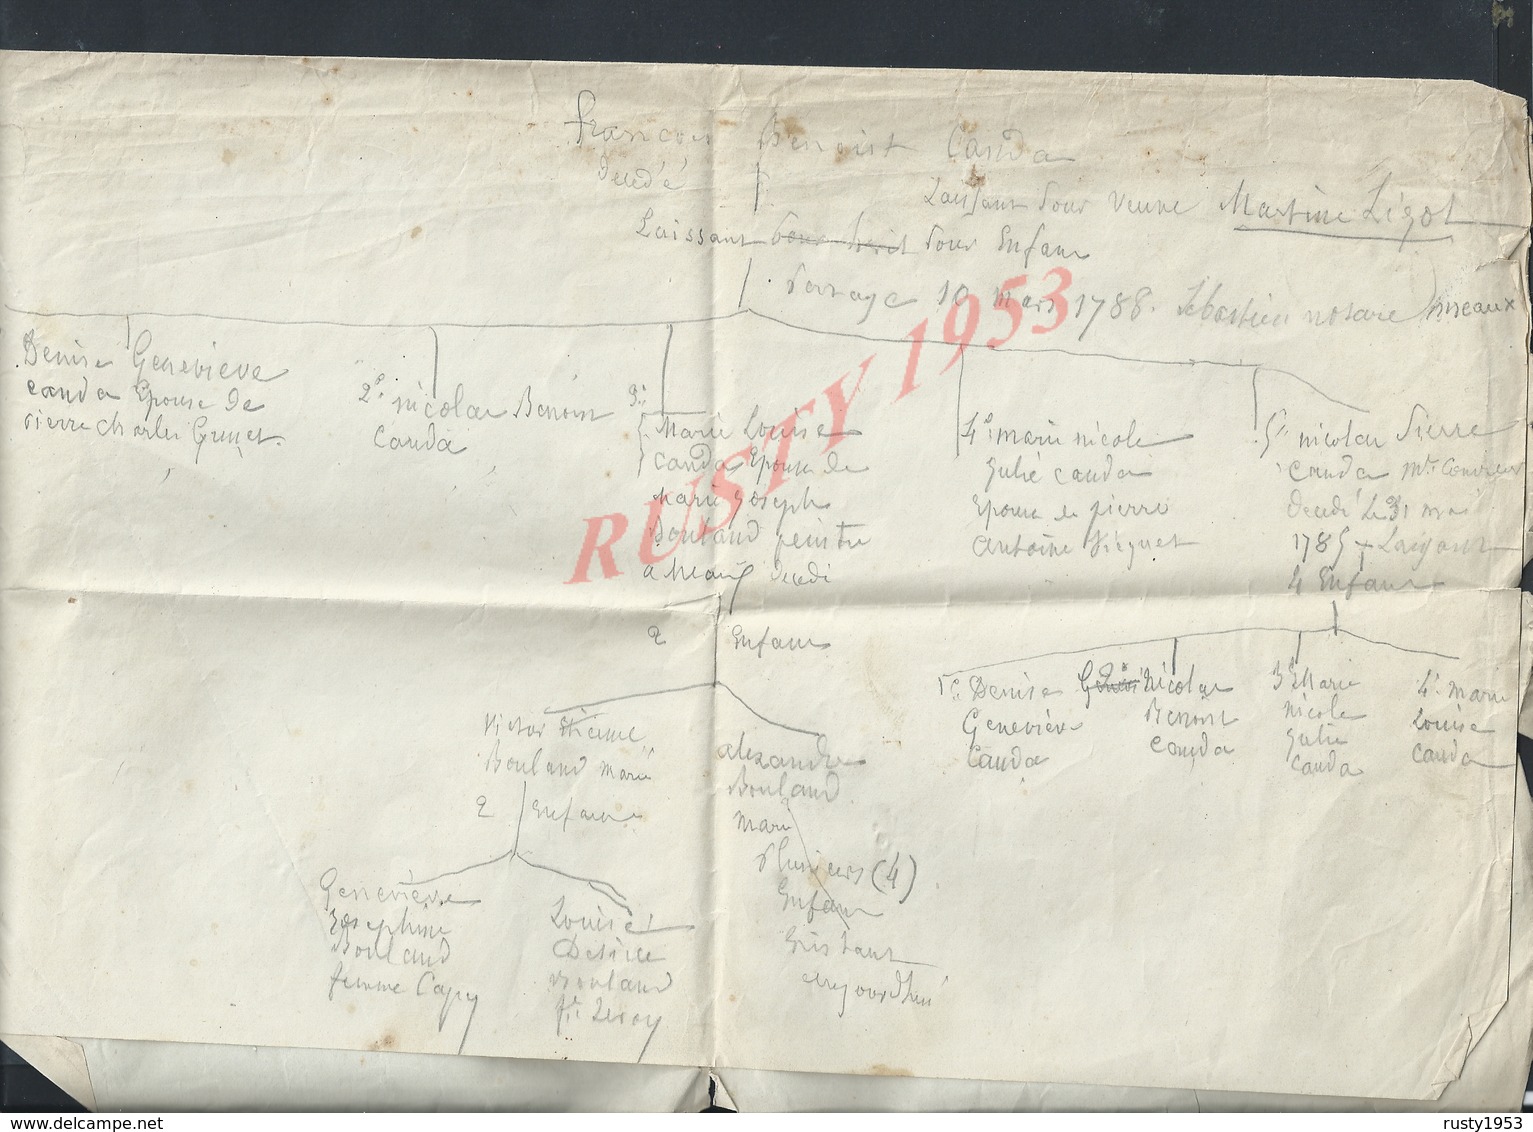 François Benoist Canda
décédé
Laissant pour veuve Martine Ligot
Laissant pour Enfans
Partage 10 Mars 1788. Sebastien notaire Meaux
Denise Genevieve
canda Epouse de
Pierre Charles
2º nicolas Benoist
canda
3º
Marie Louise
canda Epouse de
Marie Joseph
Bouland peintre
a Meaux décédé
4º marie nicole
Julie canda
Epouse de pierre
Antoine
5º nicolas Pierre
Canda Md
décédé Le 31 mai
1785 Laissant
4 Enfans
2 Enfans
1º Denise
Geneviève
Canda
2º Nicolas
Benoist
canda
3º Marie
nicole
Julie
canda
4º marie
Louise
canda
Victor Etienne
Bouland marié
2 Enfans
Alexandre
Bouland
marié
Plusieurs (4)
Enfans
Existant
aujourdhui
Genevieve
Josephine
Bouland
femme Capy
Louise
Desirée
Bouland
fe Leroy
RUSTY 1953
delcampe.net
rusty1953